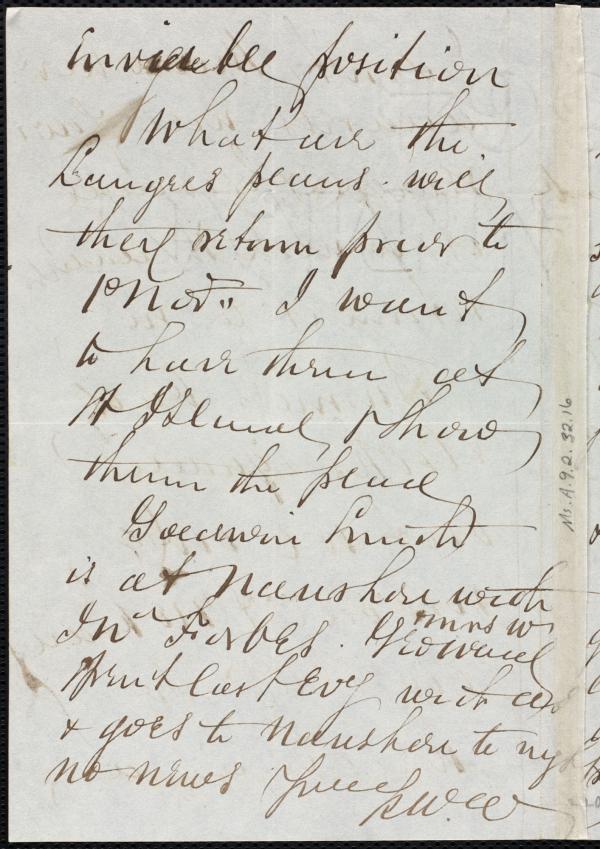 Enviable position
What are the
Langres plans. will
they return prior to
1st Nov. I want
to have them at
W Island, & show
them the place
Goldwin Smith
is at Naushon with
Jno Forbes. Mrs W
spent last Evg with us
& goes to Naushon to
no news Yrs
Ms. A. 9. 2. 32. 16